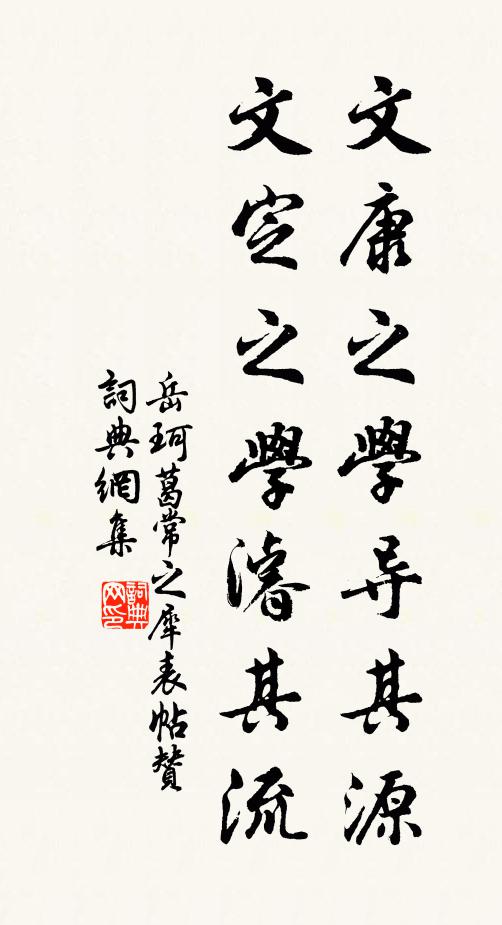 文康之學导其源
文定之學濬其流
岳珂葛常之犀表帖贊
詞典網集
詞典网印